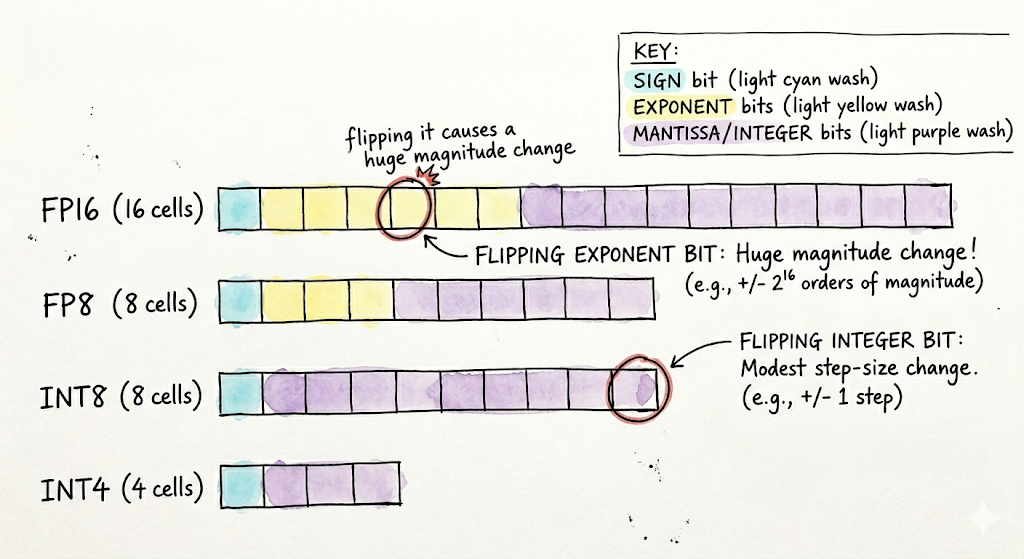 KEY:
SIGN bit (light cyan wash)
EXPONENT bits (light yellow wash)
MANTISSA/INTEGER bits (light purple wash)
flipping it causes a
huge magnitude change
FP16 (16 cells)
FLIPPING EXPONENT BIT: Huge magnitude change!
(e.g., +/- 2¹⁶ orders of magnitude)
FP8 (8 cells)
FLIPPING INTEGER BIT:
Modest step-size change.
(e.g., +/- 1 step)
INT8 (8 cells)
INT4 (4 cells)